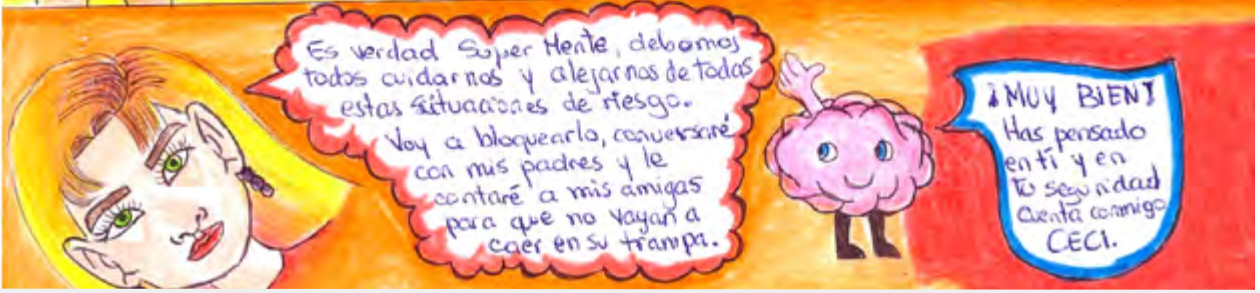 Es verdad Super Mente, debemos
todos cuidarnos y alejarnos de todas
estas situaciones de riesgo.
Voy a bloquearlo, conversaré
con mis padres y le
contaré a mis amigas
para que no vayan a
caer en su trampa.
¡MUY BIEN!
Has pensado
en tí y en
tu seguridad
cuenta conmigo
CECI.